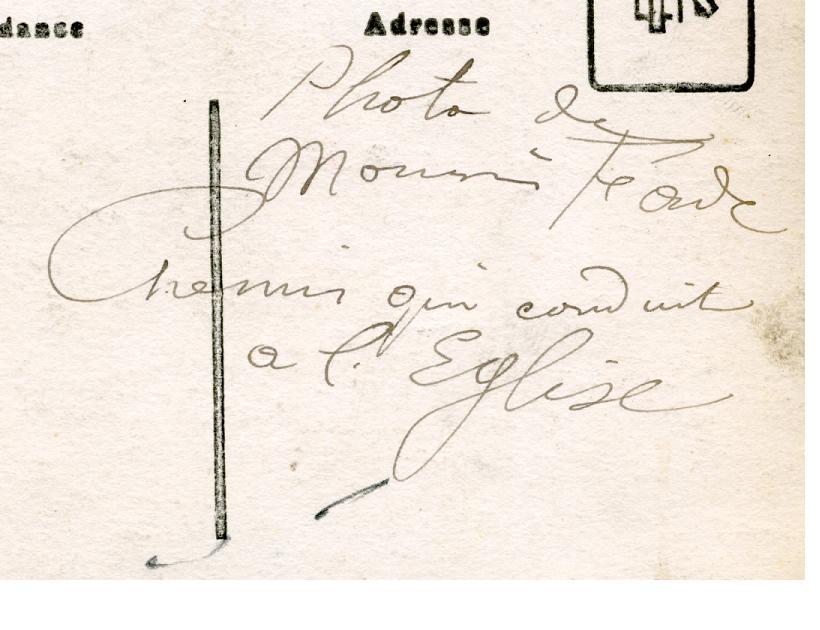 dance Adresse
Photo de
Chemin qui conduit
a l'Eglise